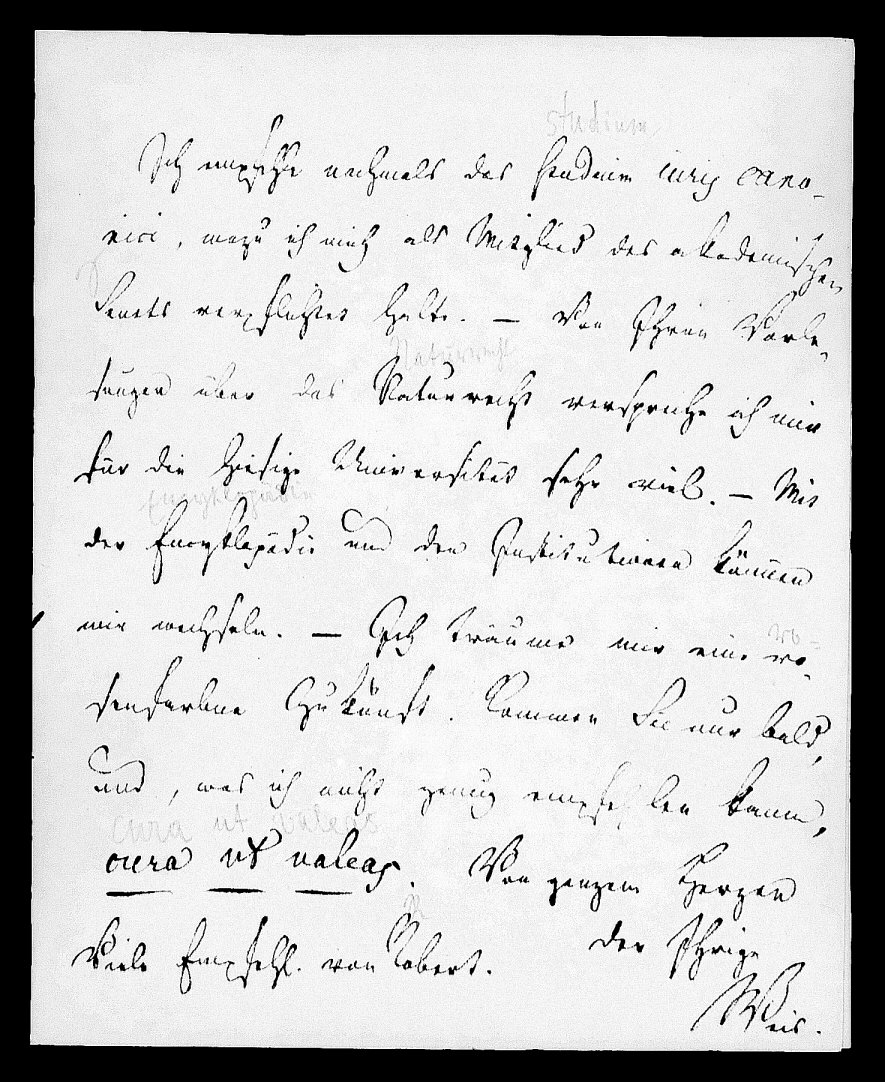 studium
Ich empfehle nochmals das Studium iuris cano-
nici, wozu ich mich als Mitglied des akademischen
Senats verpflichtet halte. — Von Ihren Vorle-
Naturrecht
sungen über das Naturrecht verspreche ich mir
für die hiesige Universität sehr viel. — Mit
Encyklopädie
der Encyklopädie und den Institutionen können
wir wechseln. — Ich träume mir eine ro-
ro-
senfarbne Zukunft. Kommen Sie nur bald,
und, was ich nicht genug empfehlen kann,
cura ut valeas
cura ut valeas. Von ganzem Herzen
der Ihrige
Viele Empfehl. von Robert.
Weis.